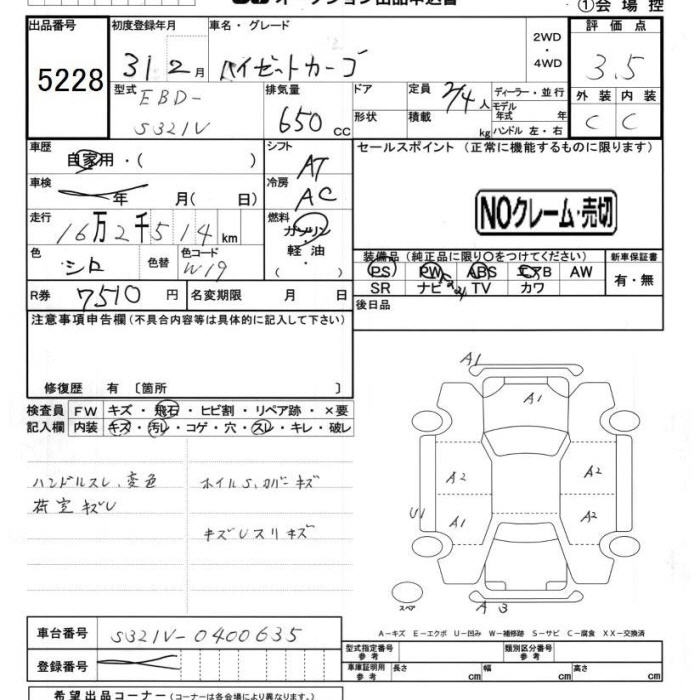 ①会場控
出品番号 5228
初度登録年月 31 2月
車名・グレード ハイゼットカーゴ
2WD・4WD
評価点 3.5
型式 EBD-S321V
排気量 650 cc
ドア
形状
定員 2/4人
積載 kg
ディーラー・並行
モデル年式 年
ハンドル 左・右
外装 C
内装 C
車歴 自家用・( )
シフト AT
セールスポイント (正常に機能するものに限ります)
車検 年 月( 日)
冷房 AC
NOクレーム・売切
走行 16万2千514km
燃料 ガソリン・軽油 ( )
色 シロ
色替
色コード W19
装備品(純正品に限り○をつけてください)
新車保証書 有・無
PS PW ABS エアB AW
SR ナビ TV カワ
R券 7510円
名変期限 月 日
後日品
注意事項申告欄(不具合内容等は具体的に記入して下さい)
修復歴 有 〔箇所 〕
検査員記入欄
FW キズ・飛石・ヒビ割・リペア跡・×要
内装 キズ・汚レ・コゲ・穴・スレ・キレ・破レ
ハンドルスレ、変色
荷室キズU
ホイルS、カバーキズ
キズUスリキズ
A1
A1
A2
A2
U1
A1
A2
A3
スペア
A-キズ E-エクボ U-凹み W-補修跡 S-サビ C-腐食 XX-交換済
車台番号 S321V-0400635
登録番号
型式指定番号 参考
類別区分番号 参考
車庫証明用 参考 長さ cm 幅 cm 高さ cm
希望出品コーナー(コーナーは各会場により異なります。)